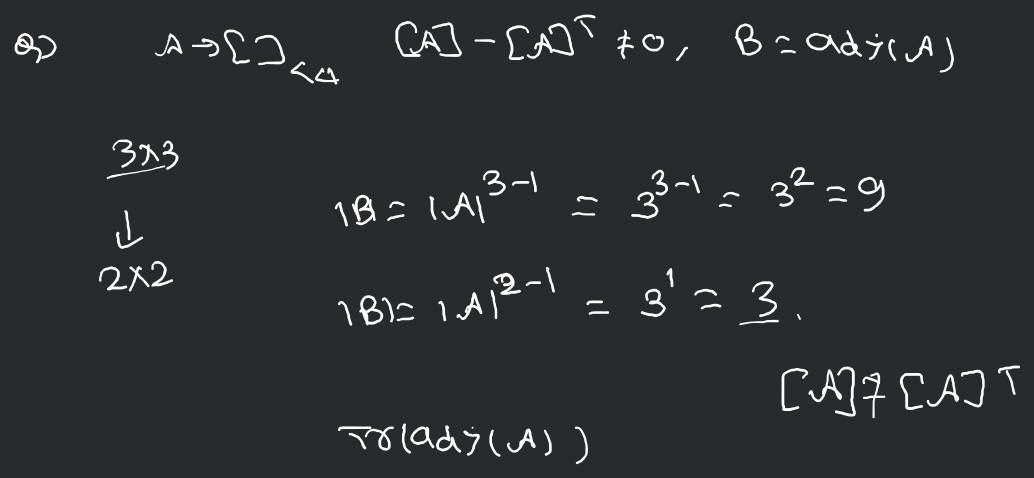 Q) A → [ ]<4 [A] - [A]ᵀ ≠ 0, B = adj(A)
3×3
↓
2×2
|B| = |A|³⁻¹ = 3³⁻¹ = 3² = 9
|B| = |A|²⁻¹ = 3¹ = 3.
[A] ≠ [A]ᵀ
Tr(adj(A))